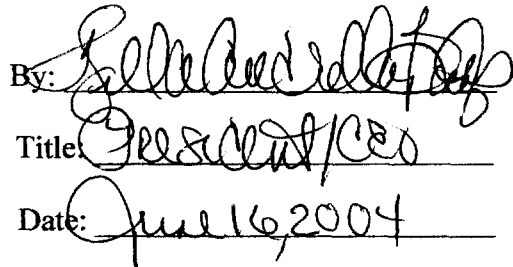 By:
Title: President/CEO
Date: June 16, 2004